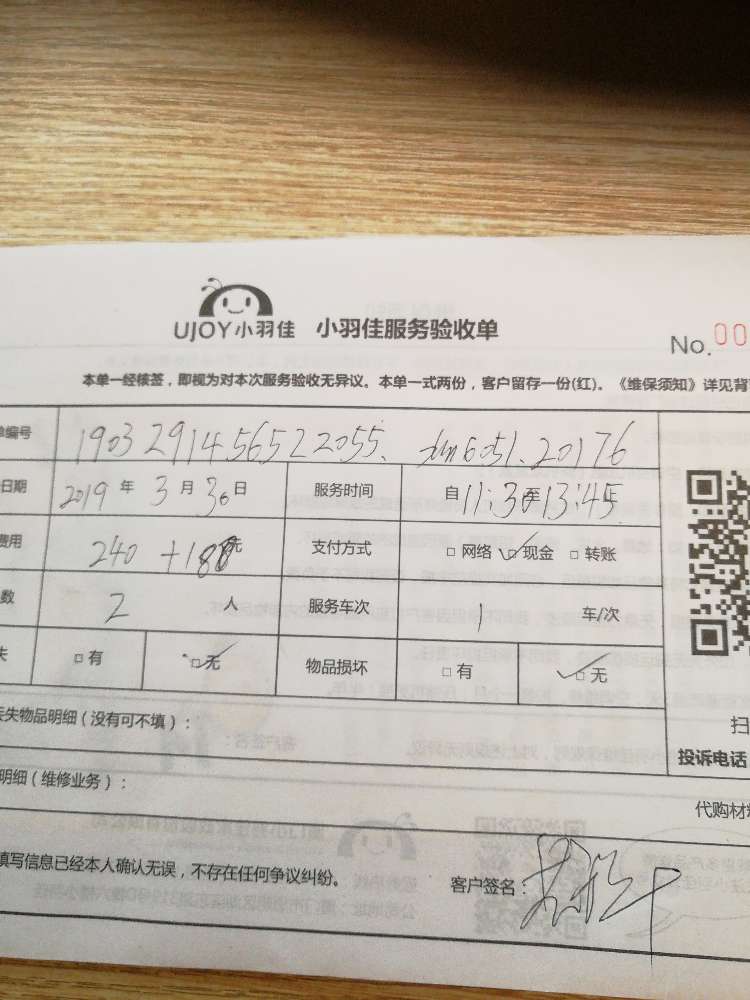 UJOY小羽佳 小羽佳服务验收单
No.00
本单一经核签，即视为对本次服务验收无异议。本单一式两份，客户留存一份(红)。《维保须知》详见背
单编号 19032914565 22055.
日期 2019 年 3 月 30 日 服务时间 自 11:30 至 13:45
费用 240 +180 元 支付方式 □ 网络 □ 现金 □ 转账
数 2 人 服务车次 1 车/次
失 □ 有 □ 无 物品损坏 □ 有 □ 无
丢失物品明细 (没有可不填)：
扫
投诉电话
明细 (维修业务)：
代购材
填写信息已经本人确认无误，不存在任何争议纠纷。 客户签名：